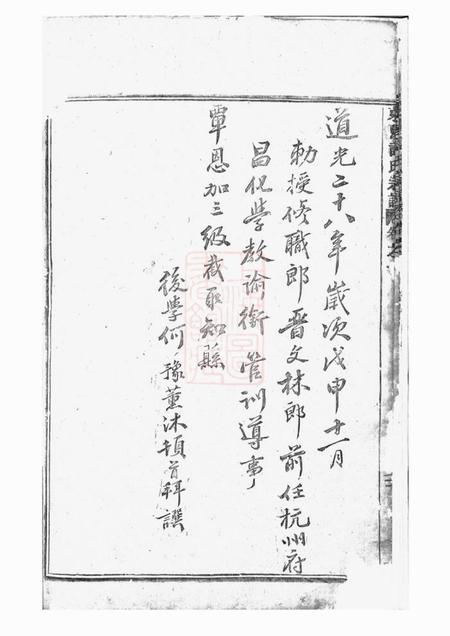 道光二十八年歲次戊申十一月
勅授修職郎晋文林郎前任杭州府
昌化學教諭銜管訓導事
覃恩加三級截取知縣
後學何豫薰沐頓首拜譔